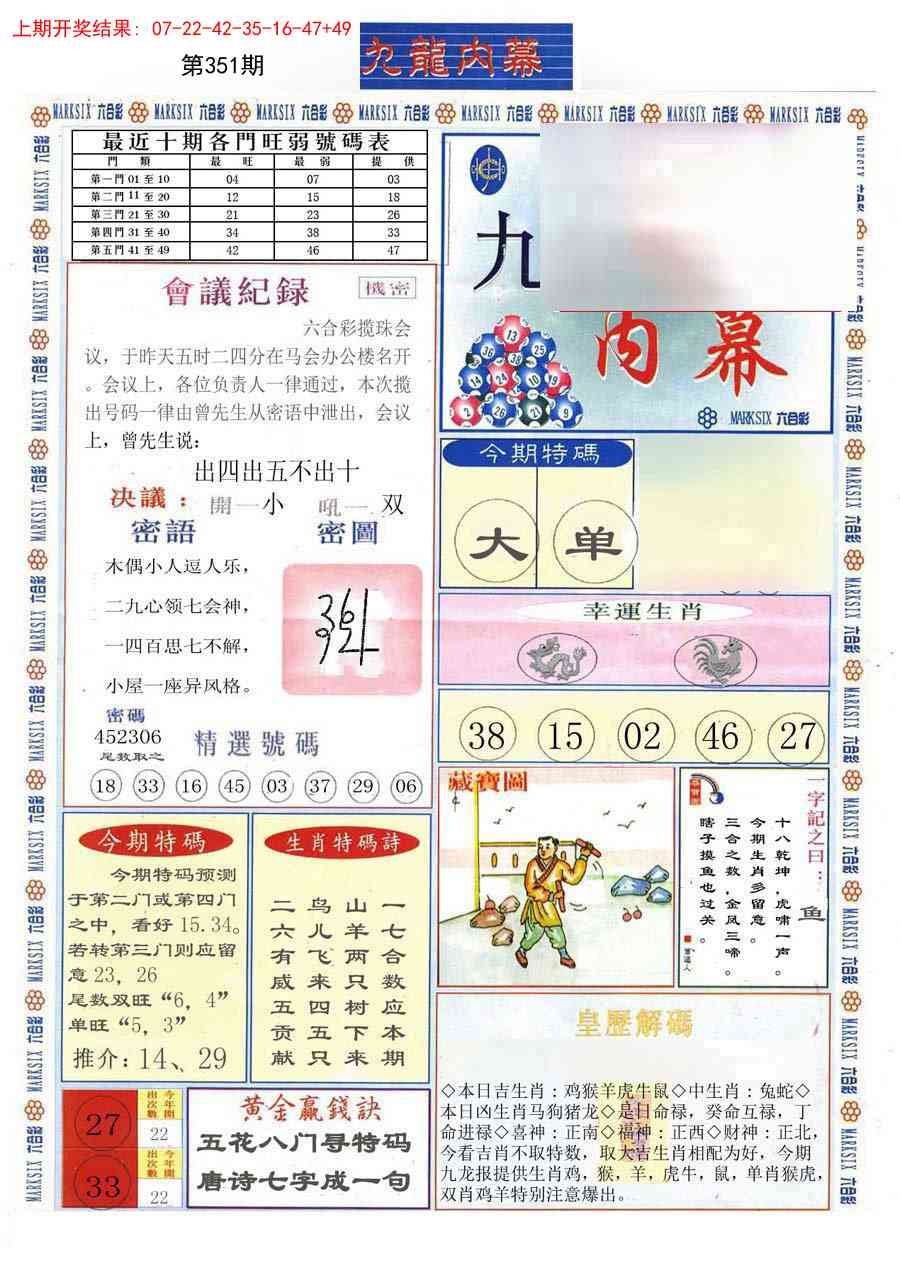 上期开奖结果: 07-22-42-35-16-47+49
第351期
九龍内幕
MARKSIX 六合彩
最近十期各門旺弱號碼表
門類 最旺 最弱 提供
第一門 01 至 10 04 07 03
第二門 11 至 20 12 15 18
第三門 21 至 30 21 23 26
第四門 31 至 40 34 38 33
第五門 41 至 49 42 46 47
九
内幕
13
36 38 25
14 24 10 19
2 26 21 9
MARKSIX 六合彩
會議紀録
機密
六合彩揽珠会
议，于昨天五时二四分在马会办公楼名开
。会议上，各位负责人一律通过，本次揽
出号码一律由曾先生从密语中泄出，会议
上，曾先生说：
出四出五不出十
决議：開一小 吼一双
密語 密圖
木偶小人逗人乐，
二九心领七会神，
一四百思七不解，
小屋一座异风格。
密碼
452306
尾数取之
精選號碼
18 33 16 45 03 37 29 06
今期特碼
大 单
幸運生肖
38 15 02 46 27
藏寶圖
一字記之曰：鱼
十八乾坤，虎啸一声。
今期生肖多留意。
三合之数，金凤三啼。
瞎子摸鱼也过关。
今期特碼
今期特码预测
于第二门或第四门
之中，看好 15.34。
若转第三门则应留
意 23，26
尾数双旺“6，4”
单旺“5，3”
推介：14、29
生肖特碼詩
一七合数应本期
山羊两只树下来
鸟儿飞来四五只
二六有威五贡献
27 今年開出次數 22
33 今年開出次數 22
黄金赢錢訣
五花八门寻特码
唐诗七字成一句
皇歷解碼
◇本日吉生肖：鸡猴羊虎牛鼠◇中生肖：兔蛇◇
本日凶生肖马狗猪龙◇是日命禄，癸命互禄，丁
命进禄◇喜神：正南◇福神：正西◇财神：正北，
今看吉肖不取特数，取大吉生肖相配为好，今期
九龙报提供生肖鸡，猴，羊，虎牛，鼠，单肖猴虎，
双肖鸡羊特别注意爆出。